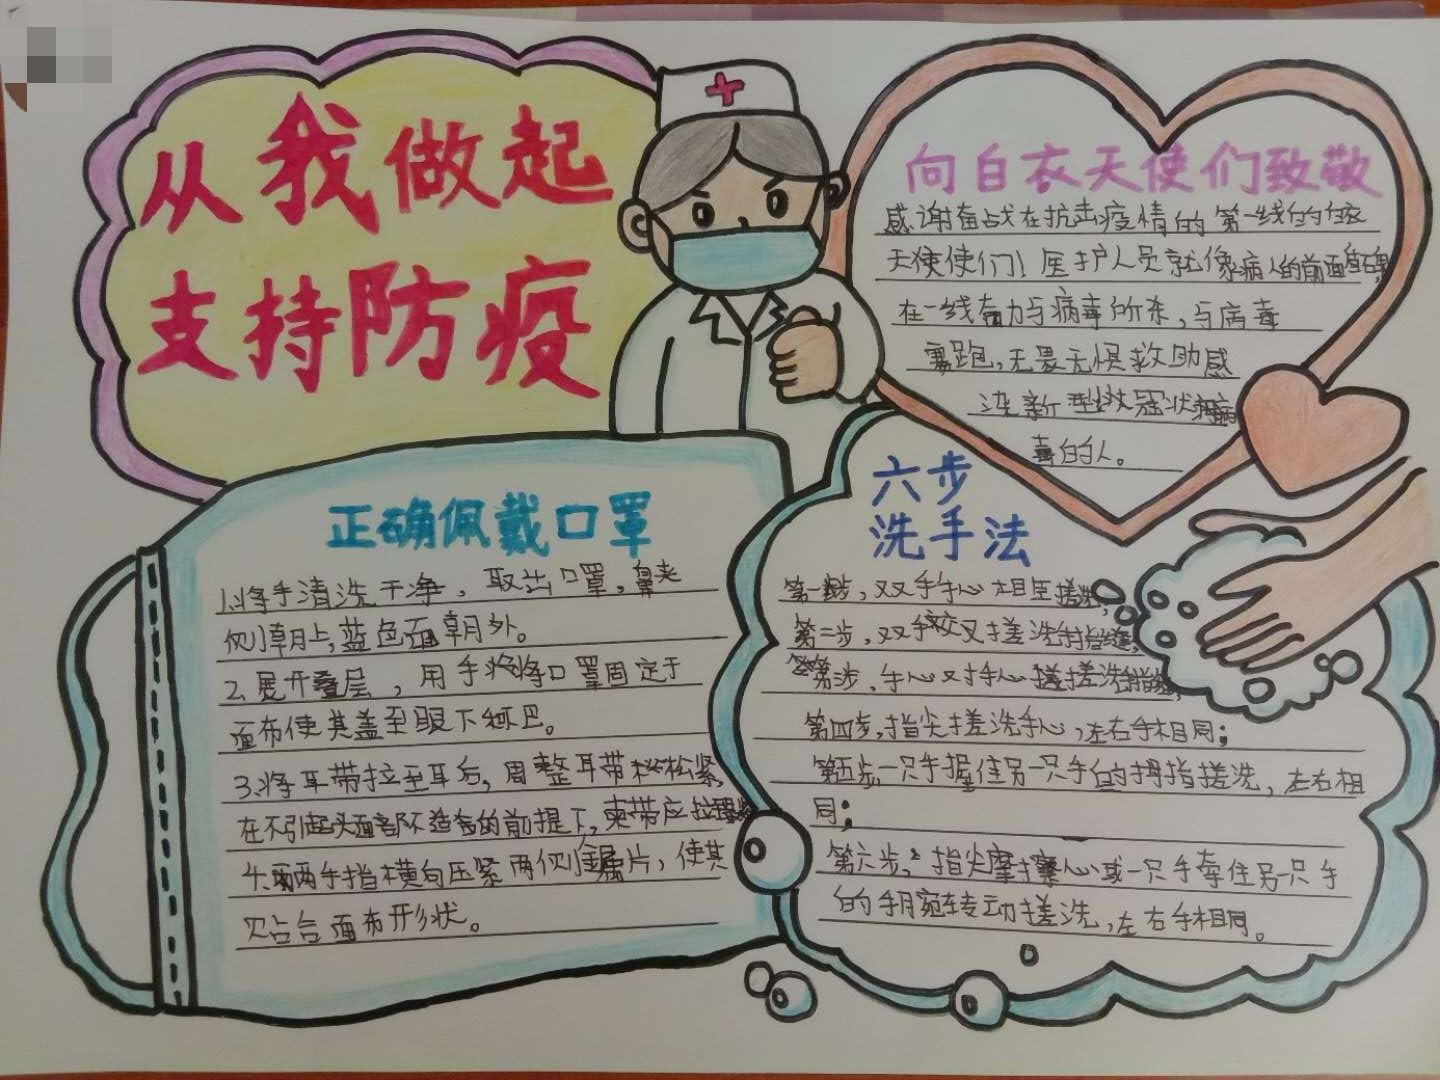 从我做起
支持防疫
向白衣天使们致敬
感谢奋战在抗击疫情的第一线的白衣
天使使们！医护人员就像病人的前面
在一线奋力与病毒所杀，与病毒
赛跑，无畏无惧救助感
染新型冠状病
毒的人。
正确佩戴口罩
1.将手清洗干净，取出口罩，鼻夹
侧朝上，蓝色面朝外。
2.展开叠层，用手将口罩固定于
面布使其盖至眼下和巴。
3.将耳带拉至耳后，周整耳带松紧，
在不引起头面部不适的前提下，束带应拉
4.两手指横向压紧两侧金属片，使其
贴合面布形状。
六步
洗手法
第一步，双手手心相互搓洗，
第二步，双手交叉搓洗手指缝，
第步，手心对手心搓搓洗手指缝，
第四步，指尖搓洗手心，左右手相同；
第五步，一只手握住另一只手的拇指搓洗，左右相
同；
第六步，指尖摩擦心或一只手牵住另一只手
的手腕转动搓洗，左右手相同。